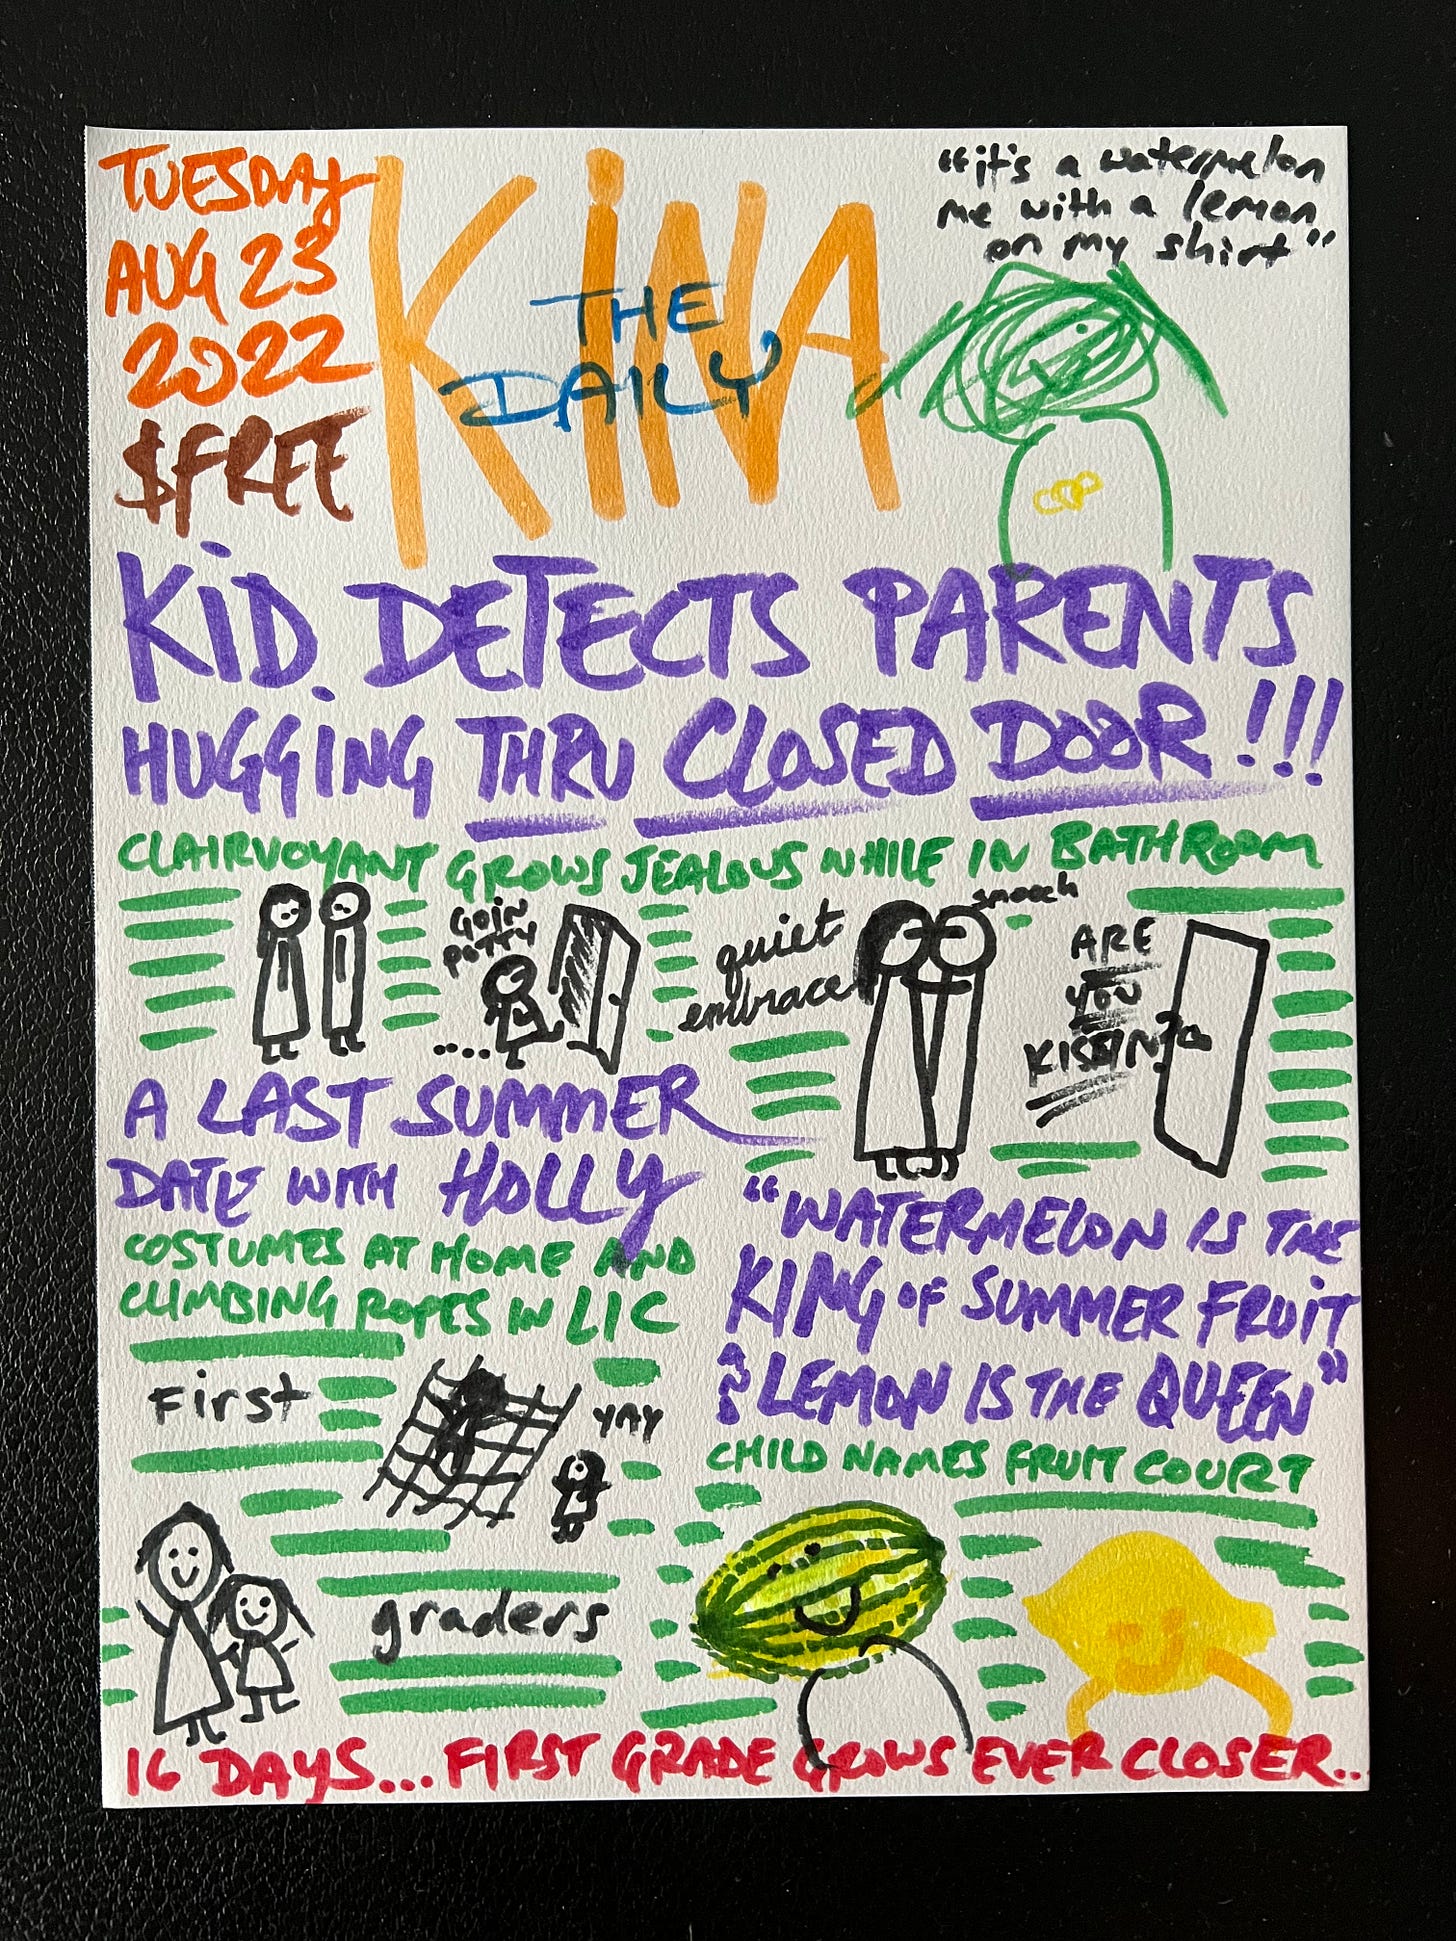 TUESDAY
AUG 23
2022
$FREE
KINA
THE
DAILY
"it's a watermelon
me with a lemon
on my shirt"
KID DETECTS PARENTS
HUGGING THRU CLOSED DOOR!!!
CLAIRVOYANT GROWS JEALOUS WHILE IN BATHROOM
GOIN
POTTY
....
quiet
embrace
smooch
ARE
YOU
KISSIN?
A LAST SUMMER
DATE WITH HOLLY
COSTUMES AT HOME AND
CLIMBING ROPES IN LIC
First
YAY
graders
"WATERMELON IS THE
KING OF SUMMER FRUIT
& LEMON IS THE QUEEN"
CHILD NAMES FRUIT COURT
16 DAYS... FIRST GRADE GROWS EVER CLOSER...